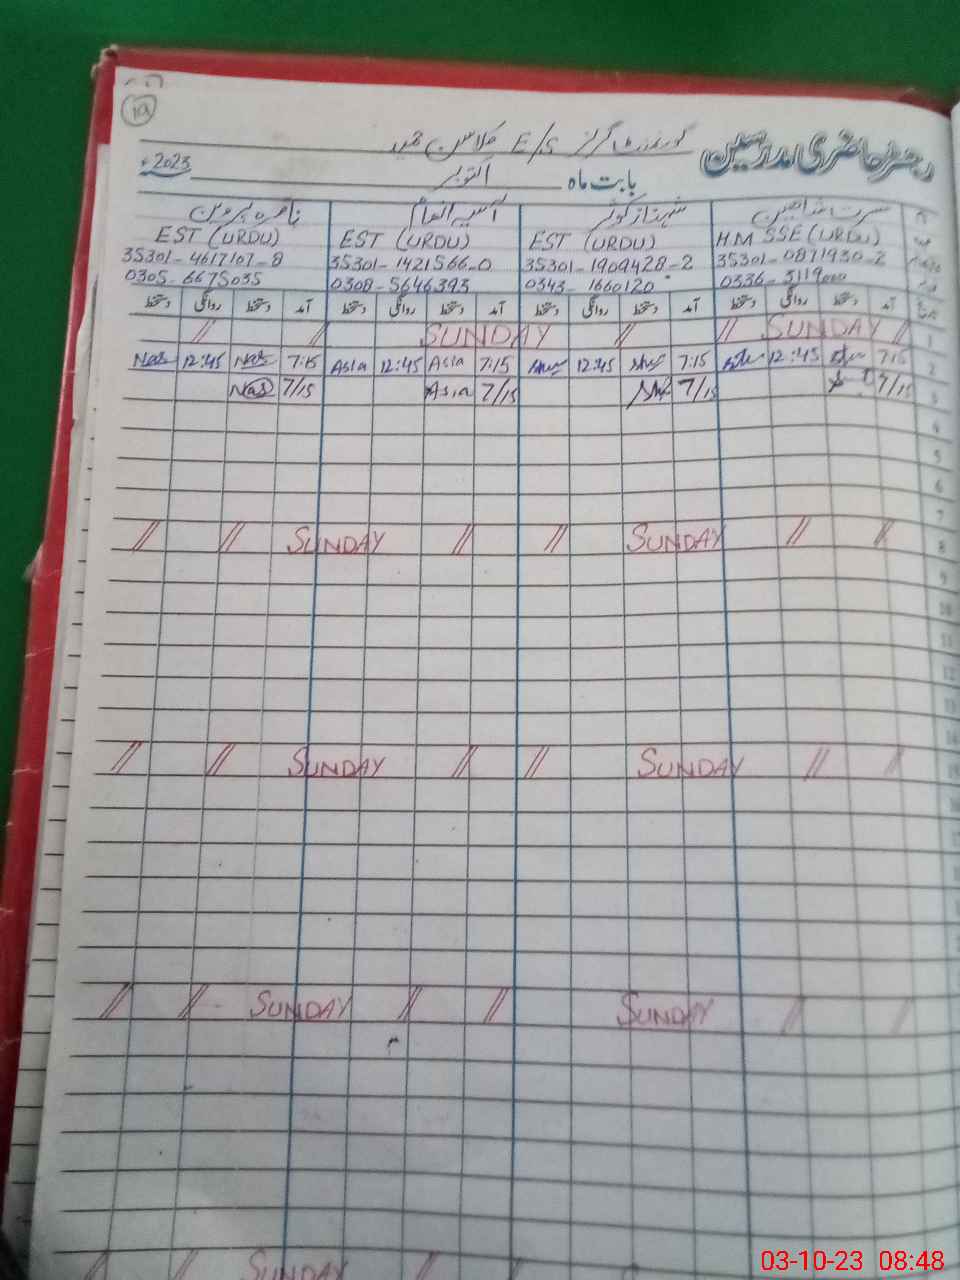 19
رجسٹر حاضری مدرسین گورنمنٹ گرلز E/S
بابت ماہ اکتوبر 2023ء
مسرت شاہین شہناز کوثر آسیہ انعام ناصرہ پروین
HM SSE (URDU) EST (URDU) EST (URDU) EST (URDU)
35301-0871930-2 35301-1909428-2 35301-1421566-0 35301-4617107-8
0336- 0343-1660120 0308-5646393 0305-6675035
آمد دستخط روانگی دستخط آمد دستخط روانگی دستخط آمد دستخط روانگی دستخط آمد دستخط روانگی دستخط
1 // SUNDAY // // SUNDAY // //
2 7:15 12:45 7:15 12:45 7:15 Asia 12:45 Asia 7:15 Nas 12:45 Nas
3 7/15 7/15 7/15 Asia 7/15 Nas
4
5
6
7
8 // // SUNDAY // // SUNDAY // //
9
10
11
12
13
14
15 // // SUNDAY // // SUNDAY // //
17
// // SUNDAY // // SUNDAY // //
// // SUNDAY // //
03-10-23 08:48